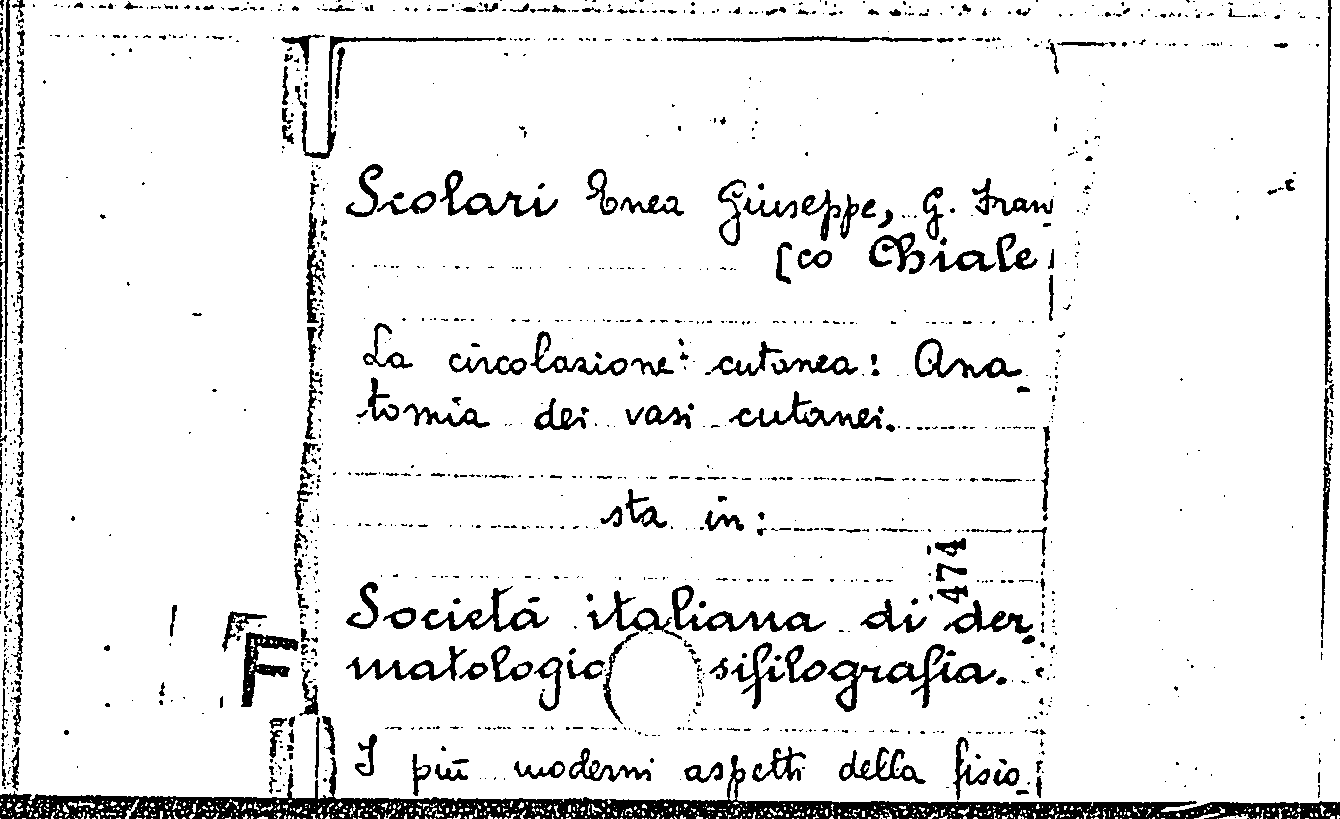 Scolari Enea Giuseppe, G. Fran-
[co Chiale
La circolazione cutanea: Ana-
tomia dei vasi cutanei.
sta in:
474
Società italiana di der-
matologia sifilografia.
F
I più moderni aspetti della fisio-